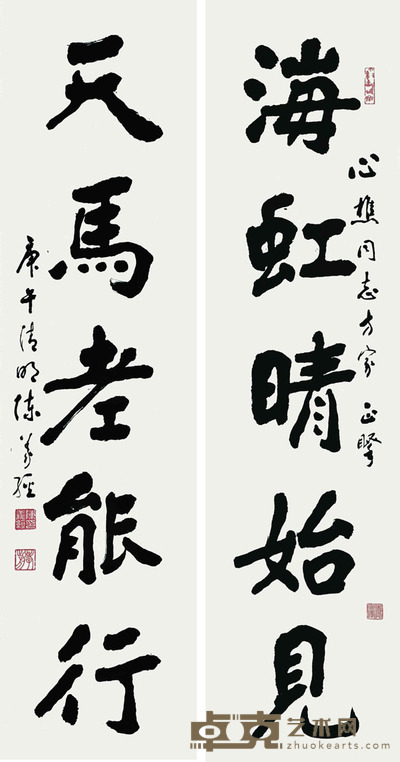 海虹晴始見
心樵同志方家正擊
天馬老能行
庚午清明陳義經
卓克艺术网
zhuokearts.com